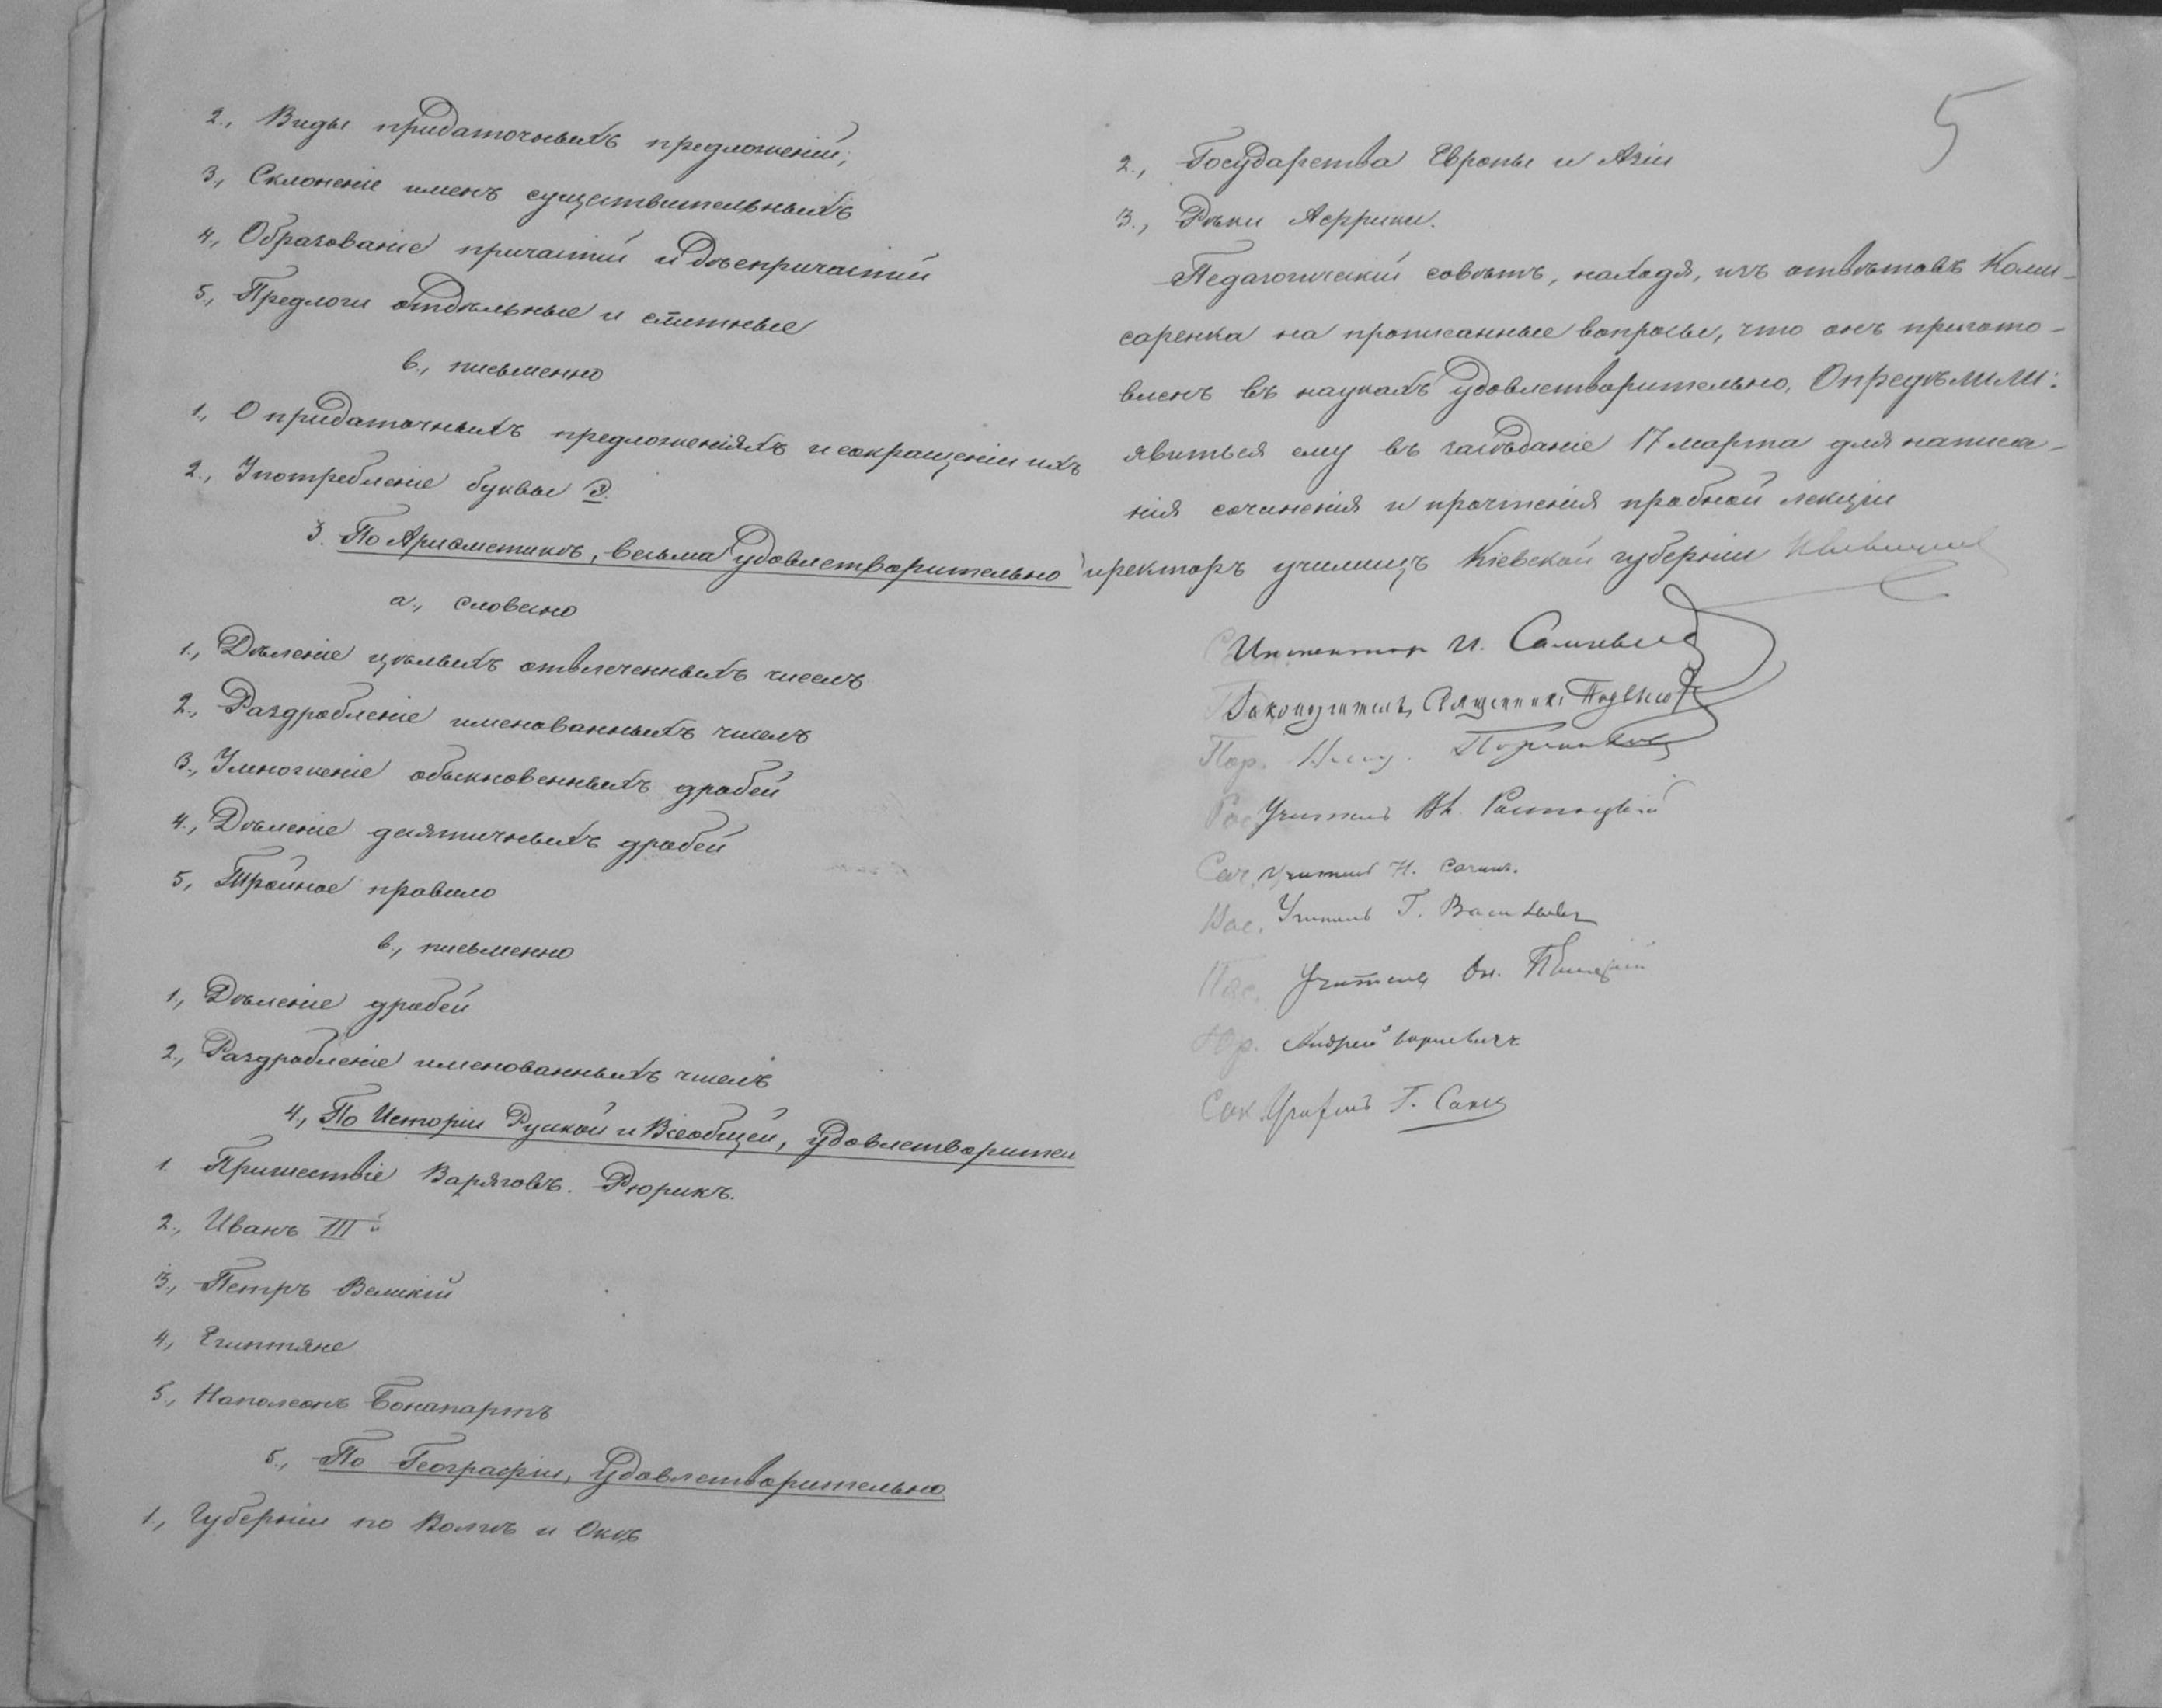 2., Виды придаточныхъ предложеній;
3, Склоненіе именъ существительныхъ
4., Образованіе причастій и дѣепричастій
5., Предлоги отдѣльные и слитные
в., письменно
1., О придаточныхъ предложеніяхъ и сокращеніи ихъ
2., Употребленіе буквы
3. По Ариѳметикѣ, весьма удовлетворительно
а., словесно
1., Дѣленіе цѣлыхъ отвлеченныхъ чиселъ
2., Раздробленіе именованныхъ чиселъ
3., Умноженіе обыкновенныхъ дробей
4., Дѣленіе десятичныхъ дробей
5, Тройное правило
в., письменно
1., Дѣленіе дробей
2., Раздробленіе именованныхъ чиселъ
4., По Исторіи Руской и Всеобщей, удовлетворител
1. Пришествіе Варяговъ. Рюрикъ.
2., Иванъ III й
3., Петръ Великій
4, Египтяне
5., Наполеонъ Бонапартъ
5., По Географіи, удовлетворительно
1., Губерніи по Волгѣ и Окѣ
5
2., Государства Европы и Азіи
3., Рѣки Аффрики.
Педагогическій совѣтъ, находя, изъ отвѣтовъ Коми-
саренка на прописанные вопросы, что онъ пригото-
вленъ въ наукахъ удовлетворительно, Опредѣлили:
явиться ему въ засѣданіе 17 марта для написа-
нія сочиненія и прочтенія пробной лекціи
иректоръ училищъ Кіевской губерніи
Инспекторъ И.
Законоучитель, Священникъ
Пор.
Учитель
Сач. Учитель Н. Сачик.
Вас. Учитель Г. Васильев
Учитель
Юр. Андрей Юркевичъ
Сак. Учитель Г. Сакс